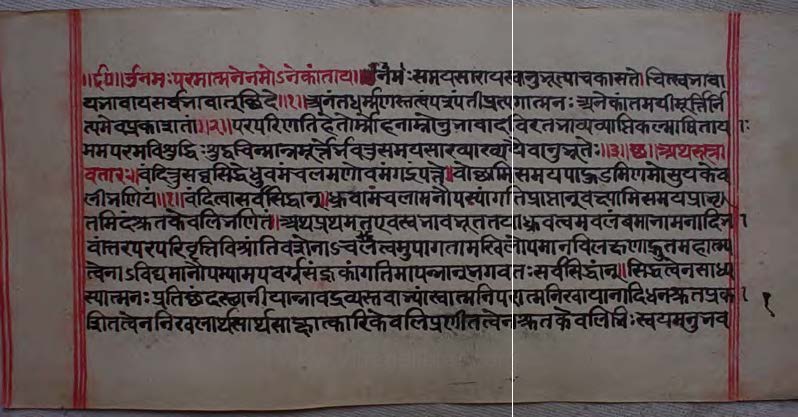 ॥ ॐनमः परमात्मने नमोऽनेकांताय॥ नमः समयसाराय स्वानुभूत्या चकासते। चित्स्वभावा
य भावाय सर्वभावांतरच्छिदे॥१॥ अनंतधर्म्मणस्तत्वं पश्यंती प्रत्यगात्मनः अनेकांतमयी मूर्त्तिर्नि
त्यमेव प्रकाशतां॥२॥ परपरिणतिहेतोर्म्मोहनाम्नोनुभावादविरतमनुभाव्यव्याप्तिकल्माषितायाः
मम परमविशुद्धिः शुद्धचिन्मात्रमूर्त्तेर्भवतु समयसारव्याख्ययैवानुभूतेः॥३॥छ॥ अथ सूत्रा
वतारः॥ वंदित्तु सव्वसिद्धे धुवमचलमणोवमं गइं पत्ते॥ वोछामि समयपाहुडमिणमो सुयकेव
लीभणियं॥१॥ वंदित्वा सर्वसिद्धान् ध्रुवामचलामनौपम्यां गतिं प्राप्तान् वक्ष्यामि समयप्राभृ
तमिदं श्रुतकेवलिभणितं॥ अथ प्रथमत एव स्वभावभूततया ध्रुवत्वमवलंबमानामनादिभा
वांतरपरपरिवृत्तिविश्रांतिवशेनाऽचलत्वमुपागतामखिलोपमानविलक्षणाद्भुतमहात्म्य
त्वेनाऽविद्यमानौपम्यामपवर्ग्गसंज्ञिकां गतिमापन्नान् भगवतः सर्वसिद्धान्॥ सिद्धत्वेन साध्य
स्यात्मनः प्रतिछंदस्थानीयान् भावद्रव्यस्तवाभ्यां स्वात्मनि परात्मनि निधायानादिनिधनश्रुतप्रका
शितत्वेन निखिलार्थसार्थसाक्षात्कारिकेवलिप्रणीतत्वेन श्रुतकेवलिभिः स्वयमनुभव
१